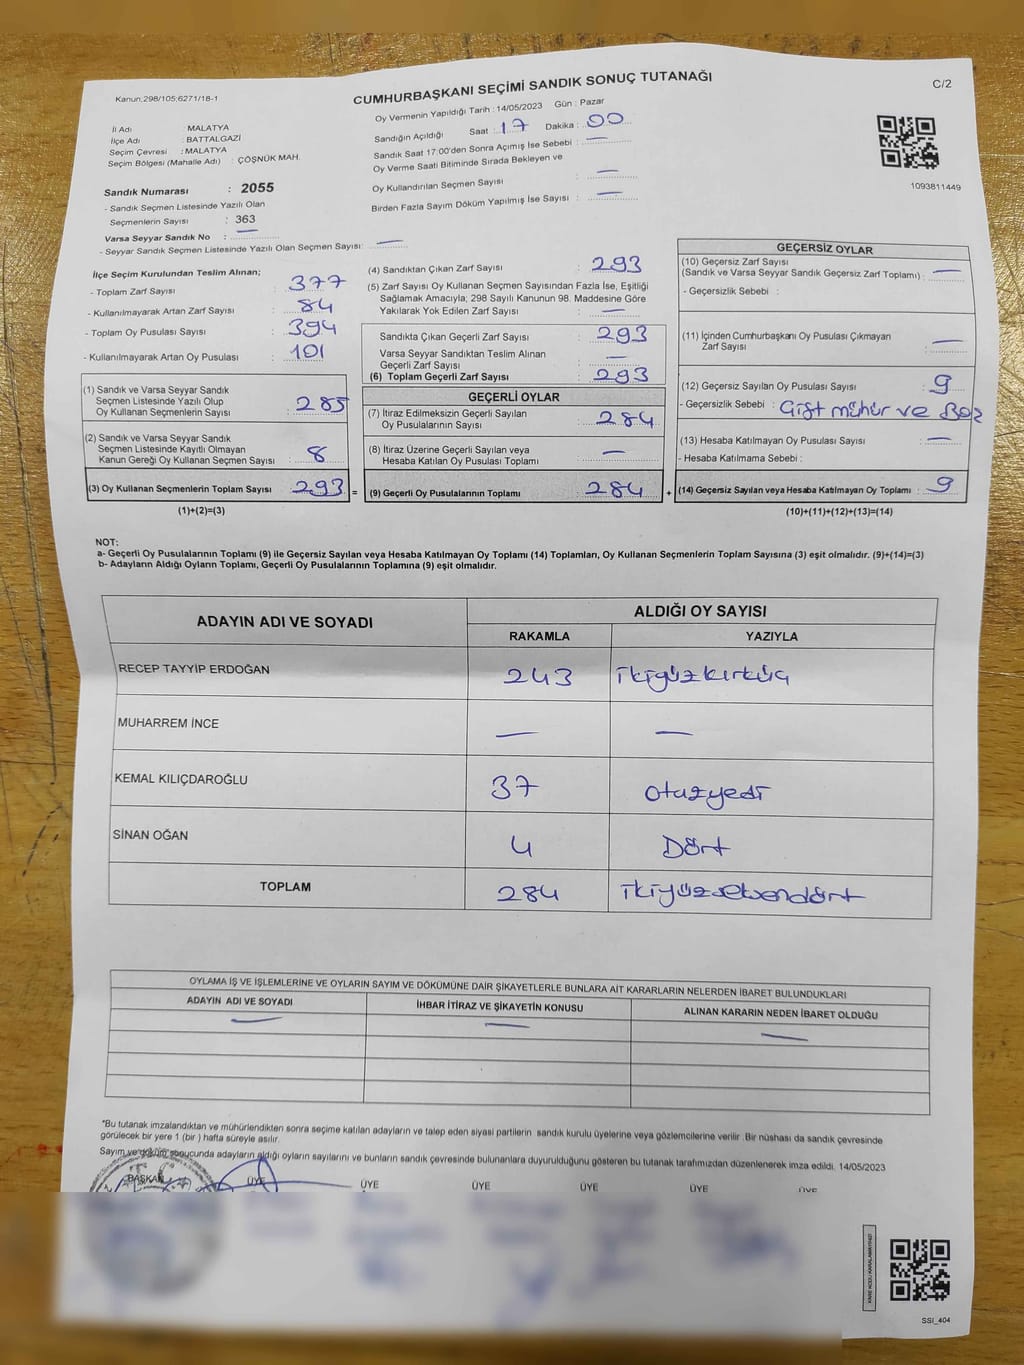 Kanun,298/105;6271/18-1
CUMHURBAŞKANI SEÇİMİ SANDIK SONUÇ TUTANAĞI
C/2
İl Adı : MALATYA
İlçe Adı : BATTALGAZİ
Seçim Çevresi : MALATYA
Seçim Bölgesi (Mahalle Adı) : ÇÖŞNÜK MAH.
Sandık Numarası : 2055
- Sandık Seçmen Listesinde Yazılı Olan
Seçmenlerin Sayısı : 363
Varsa Seyyar Sandık No : —
- Seyyar Sandık Seçmen Listesinde Yazılı Olan Seçmen Sayısı: —
Oy Vermenin Yapıldığı Tarih : 14/05/2023 Gün : Pazar
Sandığın Açıldığı Saat : 17 Dakika : 00
Sandık Saat 17:00'den Sonra Açımış İse Sebebi : —
Oy Verme Saati Bitiminde Sırada Bekleyen ve
Oy Kullandırılan Seçmen Sayısı : —
Birden Fazla Sayım Döküm Yapılmış İse Sayısı : —
1093811449
İlçe Seçim Kurulundan Teslim Alınan;
- Toplam Zarf Sayısı : 377
- Kullanılmayarak Artan Zarf Sayısı : 84
- Toplam Oy Pusulası Sayısı : 394
- Kullanılmayarak Artan Oy Pusulası : 101
(1) Sandık ve Varsa Seyyar Sandık
Seçmen Listesinde Yazılı Olup
Oy Kullanan Seçmenlerin Sayısı : 285
(2) Sandık ve Varsa Seyyar Sandık
Seçmen Listesinde Kayıtlı Olmayan
Kanun Gereği Oy Kullanan Seçmen Sayısı : 8
(3) Oy Kullanan Seçmenlerin Toplam Sayısı 293 =
(1)+(2)=(3)
(4) Sandıktan Çıkan Zarf Sayısı : 293
(5) Zarf Sayısı Oy Kullanan Seçmen Sayısından Fazla İse, Eşitliği
Sağlamak Amacıyla; 298 Sayılı Kanunun 98. Maddesine Göre
Yakılarak Yok Edilen Zarf Sayısı : —
Sandıkta Çıkan Geçerli Zarf Sayısı : 293
Varsa Seyyar Sandıktan Teslim Alınan
Geçerli Zarf Sayısı : —
(6) Toplam Geçerli Zarf Sayısı : 293
GEÇERLİ OYLAR
(7) İtiraz Edilmeksizin Geçerli Sayılan
Oy Pusulalarının Sayısı : 284
(8) İtiraz Üzerine Geçerli Sayılan veya
Hesaba Katılan Oy Pusulası Toplamı : —
(9) Geçerli Oy Pusulalarının Toplamı : 284 +
GEÇERSİZ OYLAR
(10) Geçersiz Zarf Sayısı
(Sandık ve Varsa Seyyar Sandık Geçersiz Zarf Toplamı) : —
- Geçersizlik Sebebi :
(11) İçinden Cumhurbaşkanı Oy Pusulası Çıkmayan
Zarf Sayısı : —
(12) Geçersiz Sayılan Oy Pusulası Sayısı : 9
- Geçersizlik Sebebi : Çift mühür ve Boş
(13) Hesaba Katılmayan Oy Pusulası Sayısı : —
- Hesaba Katılmama Sebebi :
(14) Geçersiz Sayılan veya Hesaba Katılmayan Oy Toplamı : 9
(10)+(11)+(12)+(13)=(14)
NOT:
a- Geçerli Oy Pusulalarının Toplamı (9) ile Geçersiz Sayılan veya Hesaba Katılmayan Oy Toplamı (14) Toplamları, Oy Kullanan Seçmenlerin Toplam Sayısına (3) eşit olmalıdır. (9)+(14)=(3)
b- Adayların Aldığı Oyların Toplamı, Geçerli Oy Pusulalarının Toplamına (9) eşit olmalıdır.
ADAYIN ADI VE SOYADI ALDIĞI OY SAYISI
RAKAMLA YAZIYLA
RECEP TAYYİP ERDOĞAN 243 ikiyüzkırküç
MUHARREM İNCE — —
KEMAL KILIÇDAROĞLU 37 otuzyedi
SİNAN OĞAN 4 Dört
TOPLAM 284 ikiyüzseksendört
OYLAMA İŞ VE İŞLEMLERİNE VE OYLARIN SAYIM VE DÖKÜMÜNE DAİR ŞİKAYETLERLE BUNLARA AİT KARARLARIN NELERDEN İBARET BULUNDUKLARI
ADAYIN ADI VE SOYADI İHBAR İTİRAZ VE ŞİKAYETİN KONUSU ALINAN KARARIN NEDEN İBARET OLDUĞU
— — —
*Bu tutanak imzalandıktan ve mühürlendikten sonra seçime katılan adayların ve talep eden siyasi partilerin sandık kurulu üyelerine veya gözlemcilerine verilir. Bir nüshası da sandık çevresinde
görülecek bir yere 1 (bir ) hafta süreyle asılır.
Sayım ve döküm sonucunda adayların aldığı oyların sayılarını ve bunların sandık çevresinde bulunanlara duyurulduğunu gösteren bu tutanak tarafımızdan düzenlenerek imza edildi. 14/05/2023
BAŞKAN ÜYE ÜYE ÜYE ÜYE ÜYE ÜYE
SSI_404